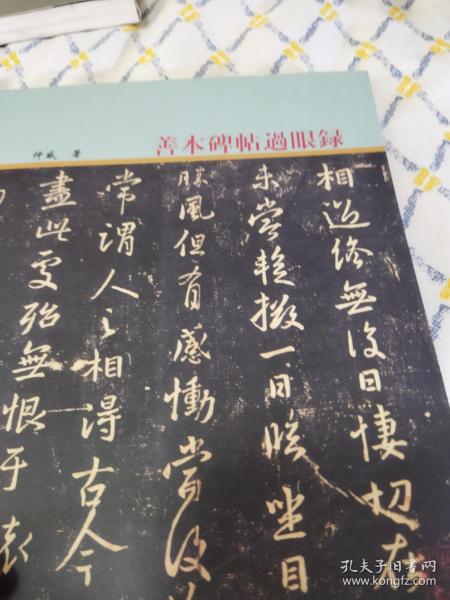 善本碑帖過眼録
仲威 著
相過終無復日悽切在
未嘗暫撥一日臨坐目
勝風但有感慟當復
常謂人之相得古今
盡此處殆無恨于懷
孔夫子旧书网
www.kongfz.com